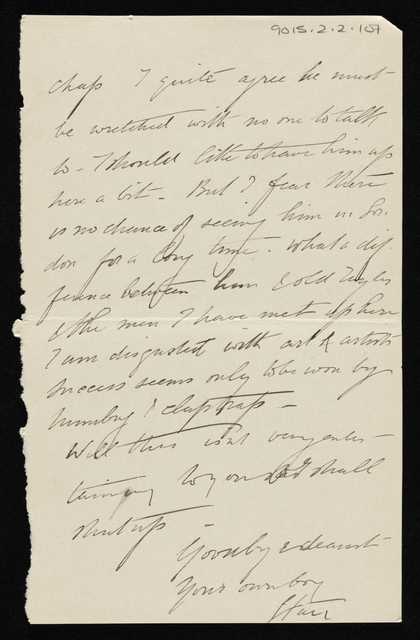 9015.2.2.107
chap I quite agree he must
be wretched with no one to talk
to - I should like to have him up
here a bit - But I fear there
is no chance of seeing him in Lon-
don for a long time. What a dif-
ference between him & old
& the men I have met up here
I am disgusted with art & artists
success seems only to be won by
humbug & claptrap -
Well this isn't very enter-
taining to you so I shall
shut up -
Goodbye dearest
Your own boy